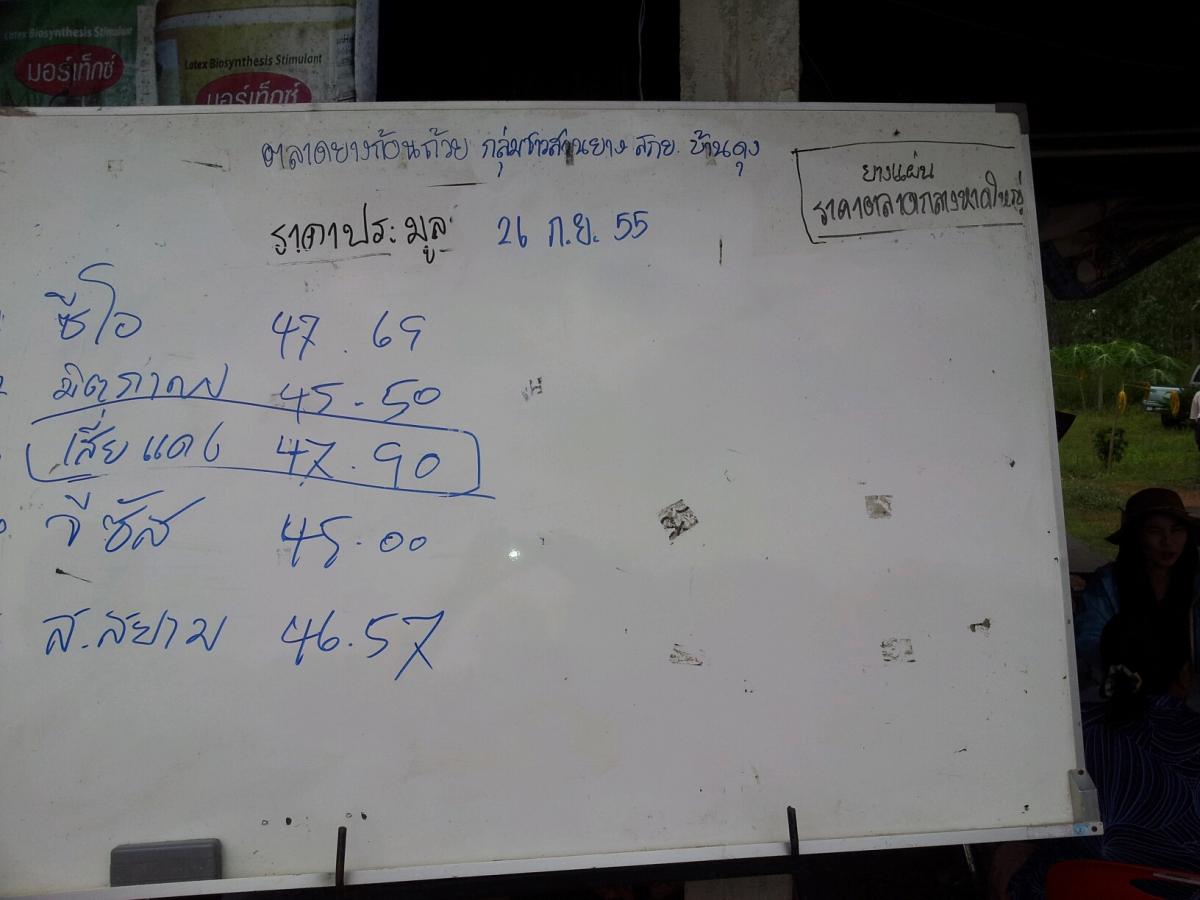 Latex Biosynthesis Stimulant
มอร์เท็กซ์
Latex Biosynthesis Stimulant
มอร์เท็กซ์
ตลาดยางก้อนถ้วย กลุ่มชาวสวนยาง สกย. บ้านดุง
ยางแผ่น
ราคาตลาดกลางหาดใหญ่
ราคาประมูล 26 ก.ย. 55
ซีโอ 47.69
45.50
เสี่ยแดง 47.90
จีซัส 45.00
ส.สยาม 46.57